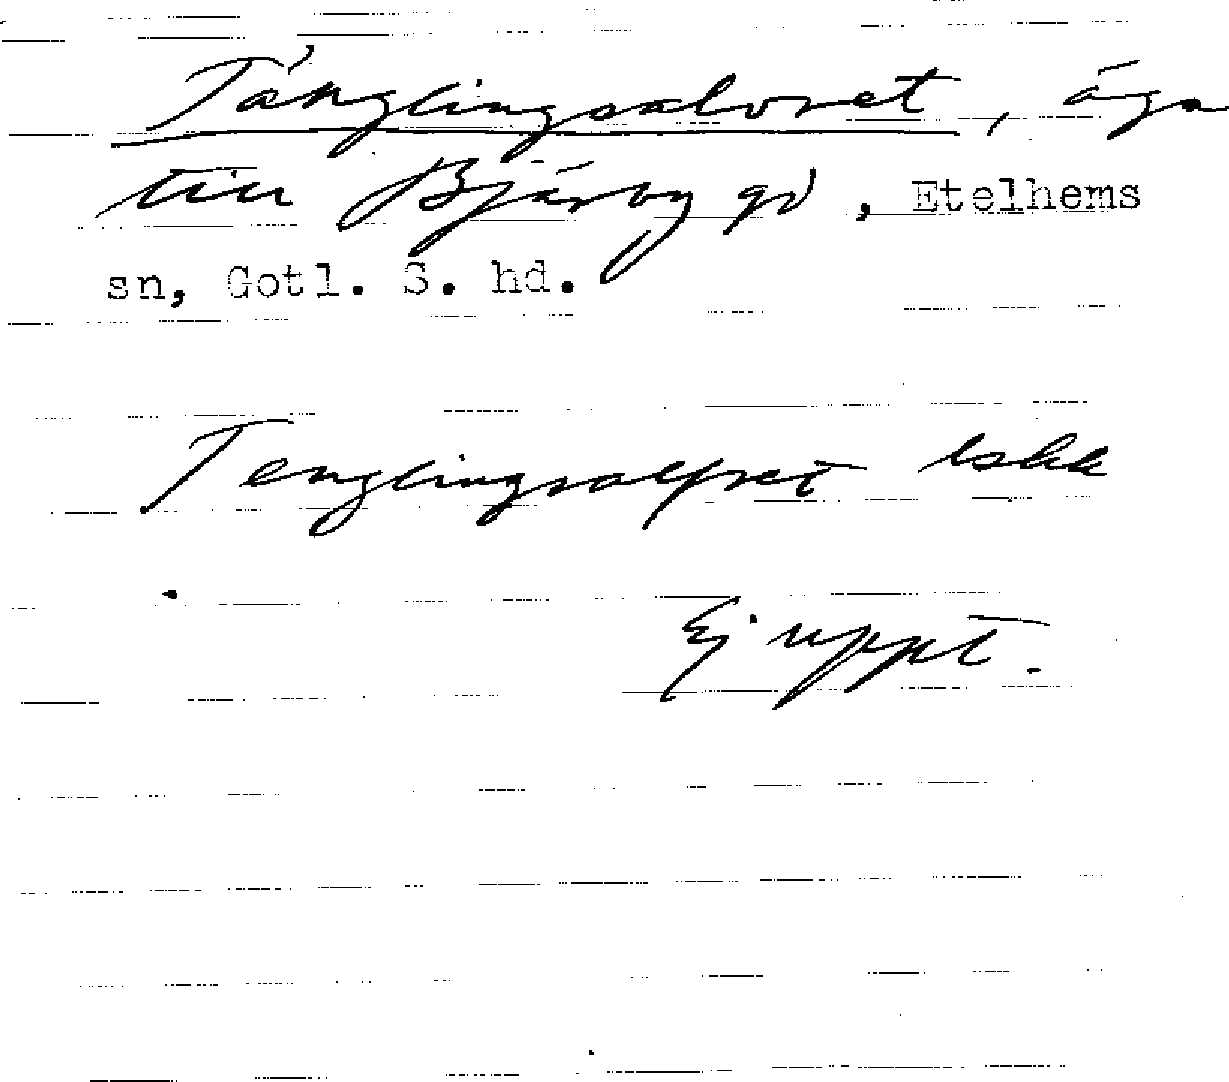 Tänglingsalvret, äga
till Bjärby gd, Etelhems
sn, Gotl. S. hd.
Tenglingsalfret lskk
Ej uppt.